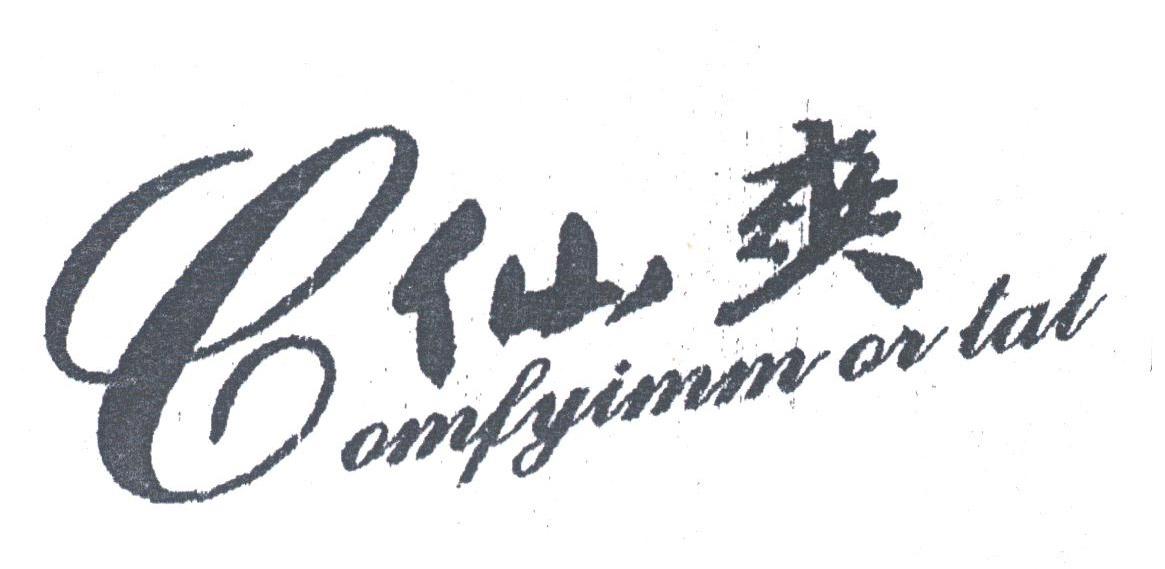 仙爽
Comfyimm or tal